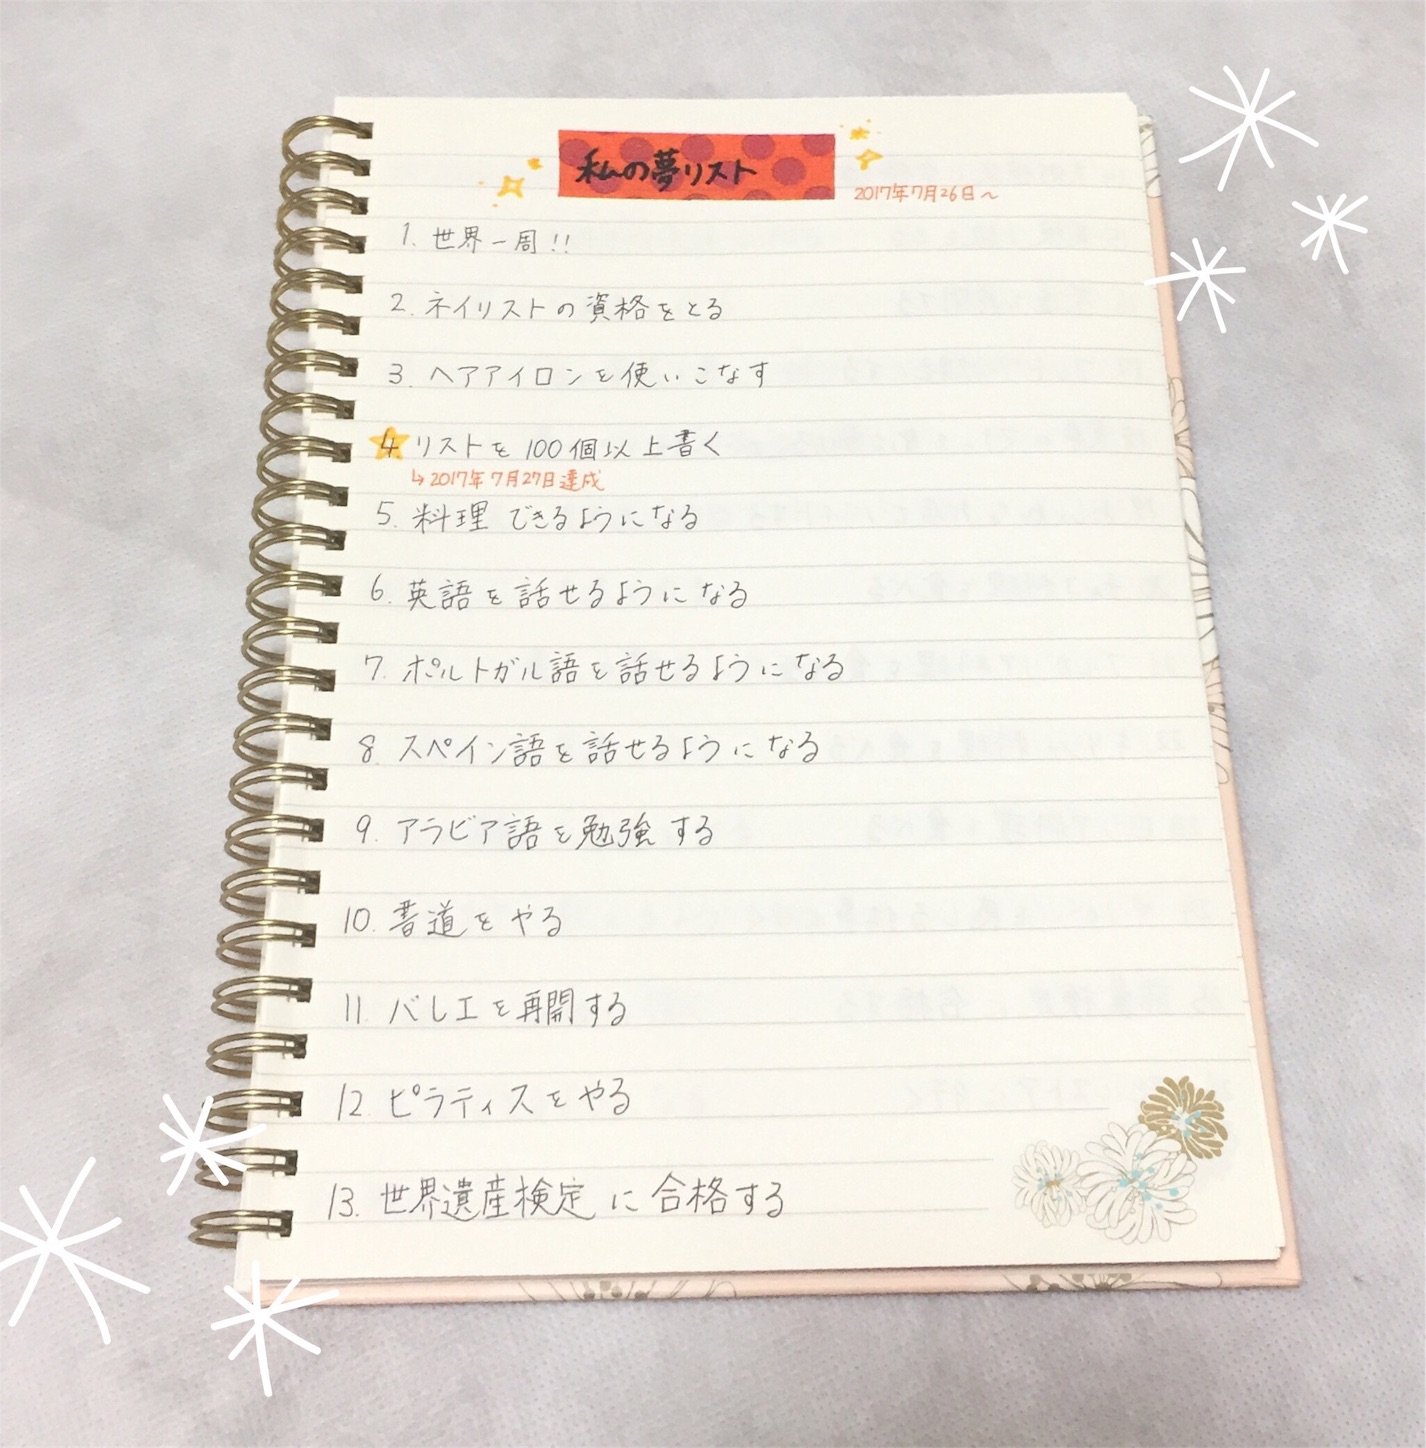 私の夢リスト
2017年7月26日～
1. 世界一周!!
2. ネイリストの資格をとる
3. ヘアアイロンを使いこなす
4 リストを100個以上書く
↳2017年7月27日達成
5. 料理できるようになる
6. 英語を話せるようになる
7. ポルトガル語を話せるようになる
8. スペイン語を話せるようになる
9. アラビア語を勉強する
10. 書道をやる
11. バレエを再開する
12. ピラティスをやる
13. 世界遺産検定に合格する